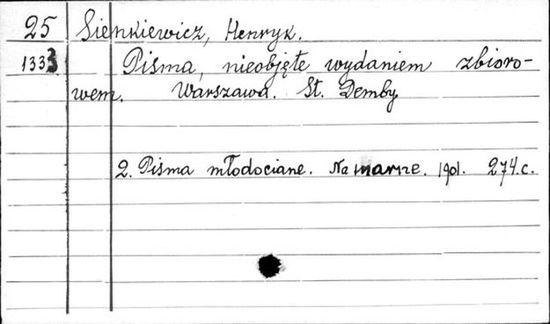 25 Sienkiewicz, Henryk.
1333 Pisma, nieobjęte wydaniem zbioro-
wem. Warszawa. St. Demby
2. Pisma młodociane. Na marne. 1901. 274.c.